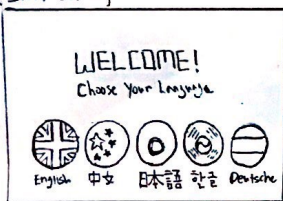 WELCOME!
Choose Your Language
English 中文 日本語 한글 Deutsche